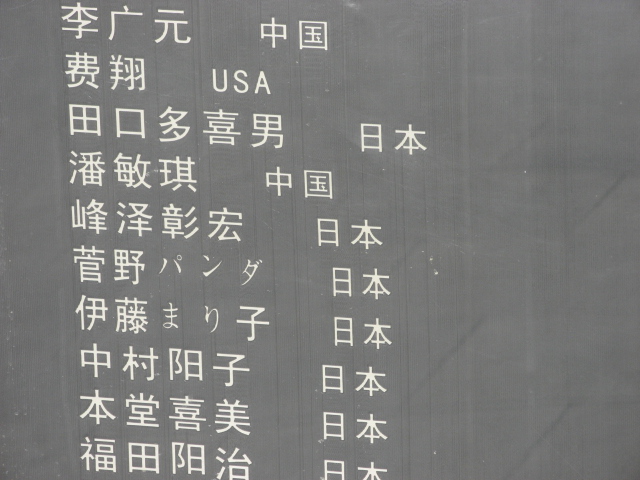 李广元 中国
费翔 USA
田口多喜男 日本
潘敏琪 中国
峰泽彰宏 日本
菅野パンダ 日本
伊藤まり子 日本
中村阳子 日本
本堂喜美 日本
福田阳治 日本